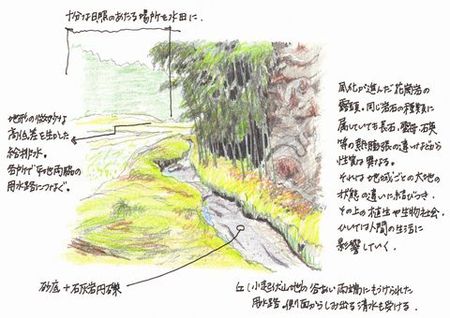 十分な日照のあたる場所を水田に.
地形の微妙な
高低差を生かした
給排水。
谷戸で平地両脇の
用水路につなぐ。
風化が進んだ花崗岩の
露頭。同じ岩石の種類に
属していても長石、雲母、石英
等の熱膨張の違いなどから
性質も異なる。
それは地域ごとの大地の
状態の違いに結びつき、
その上の植生や生物社会、
ひいては人間の生活に
影響していく。
砂底 + 石灰岩円礫
丘(小起伏山地)の谷あい両端にもうけられた
用水路。側面からしみ出る清水も受ける。